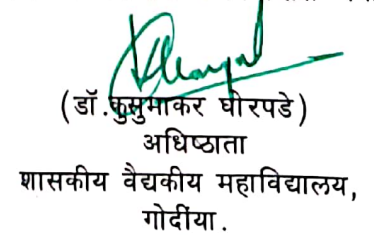 (डॉ.कुसुमाकर घोरपडे)
अधिष्ठाता
शासकीय वैद्यकीय महाविद्यालय,
गोदींया.